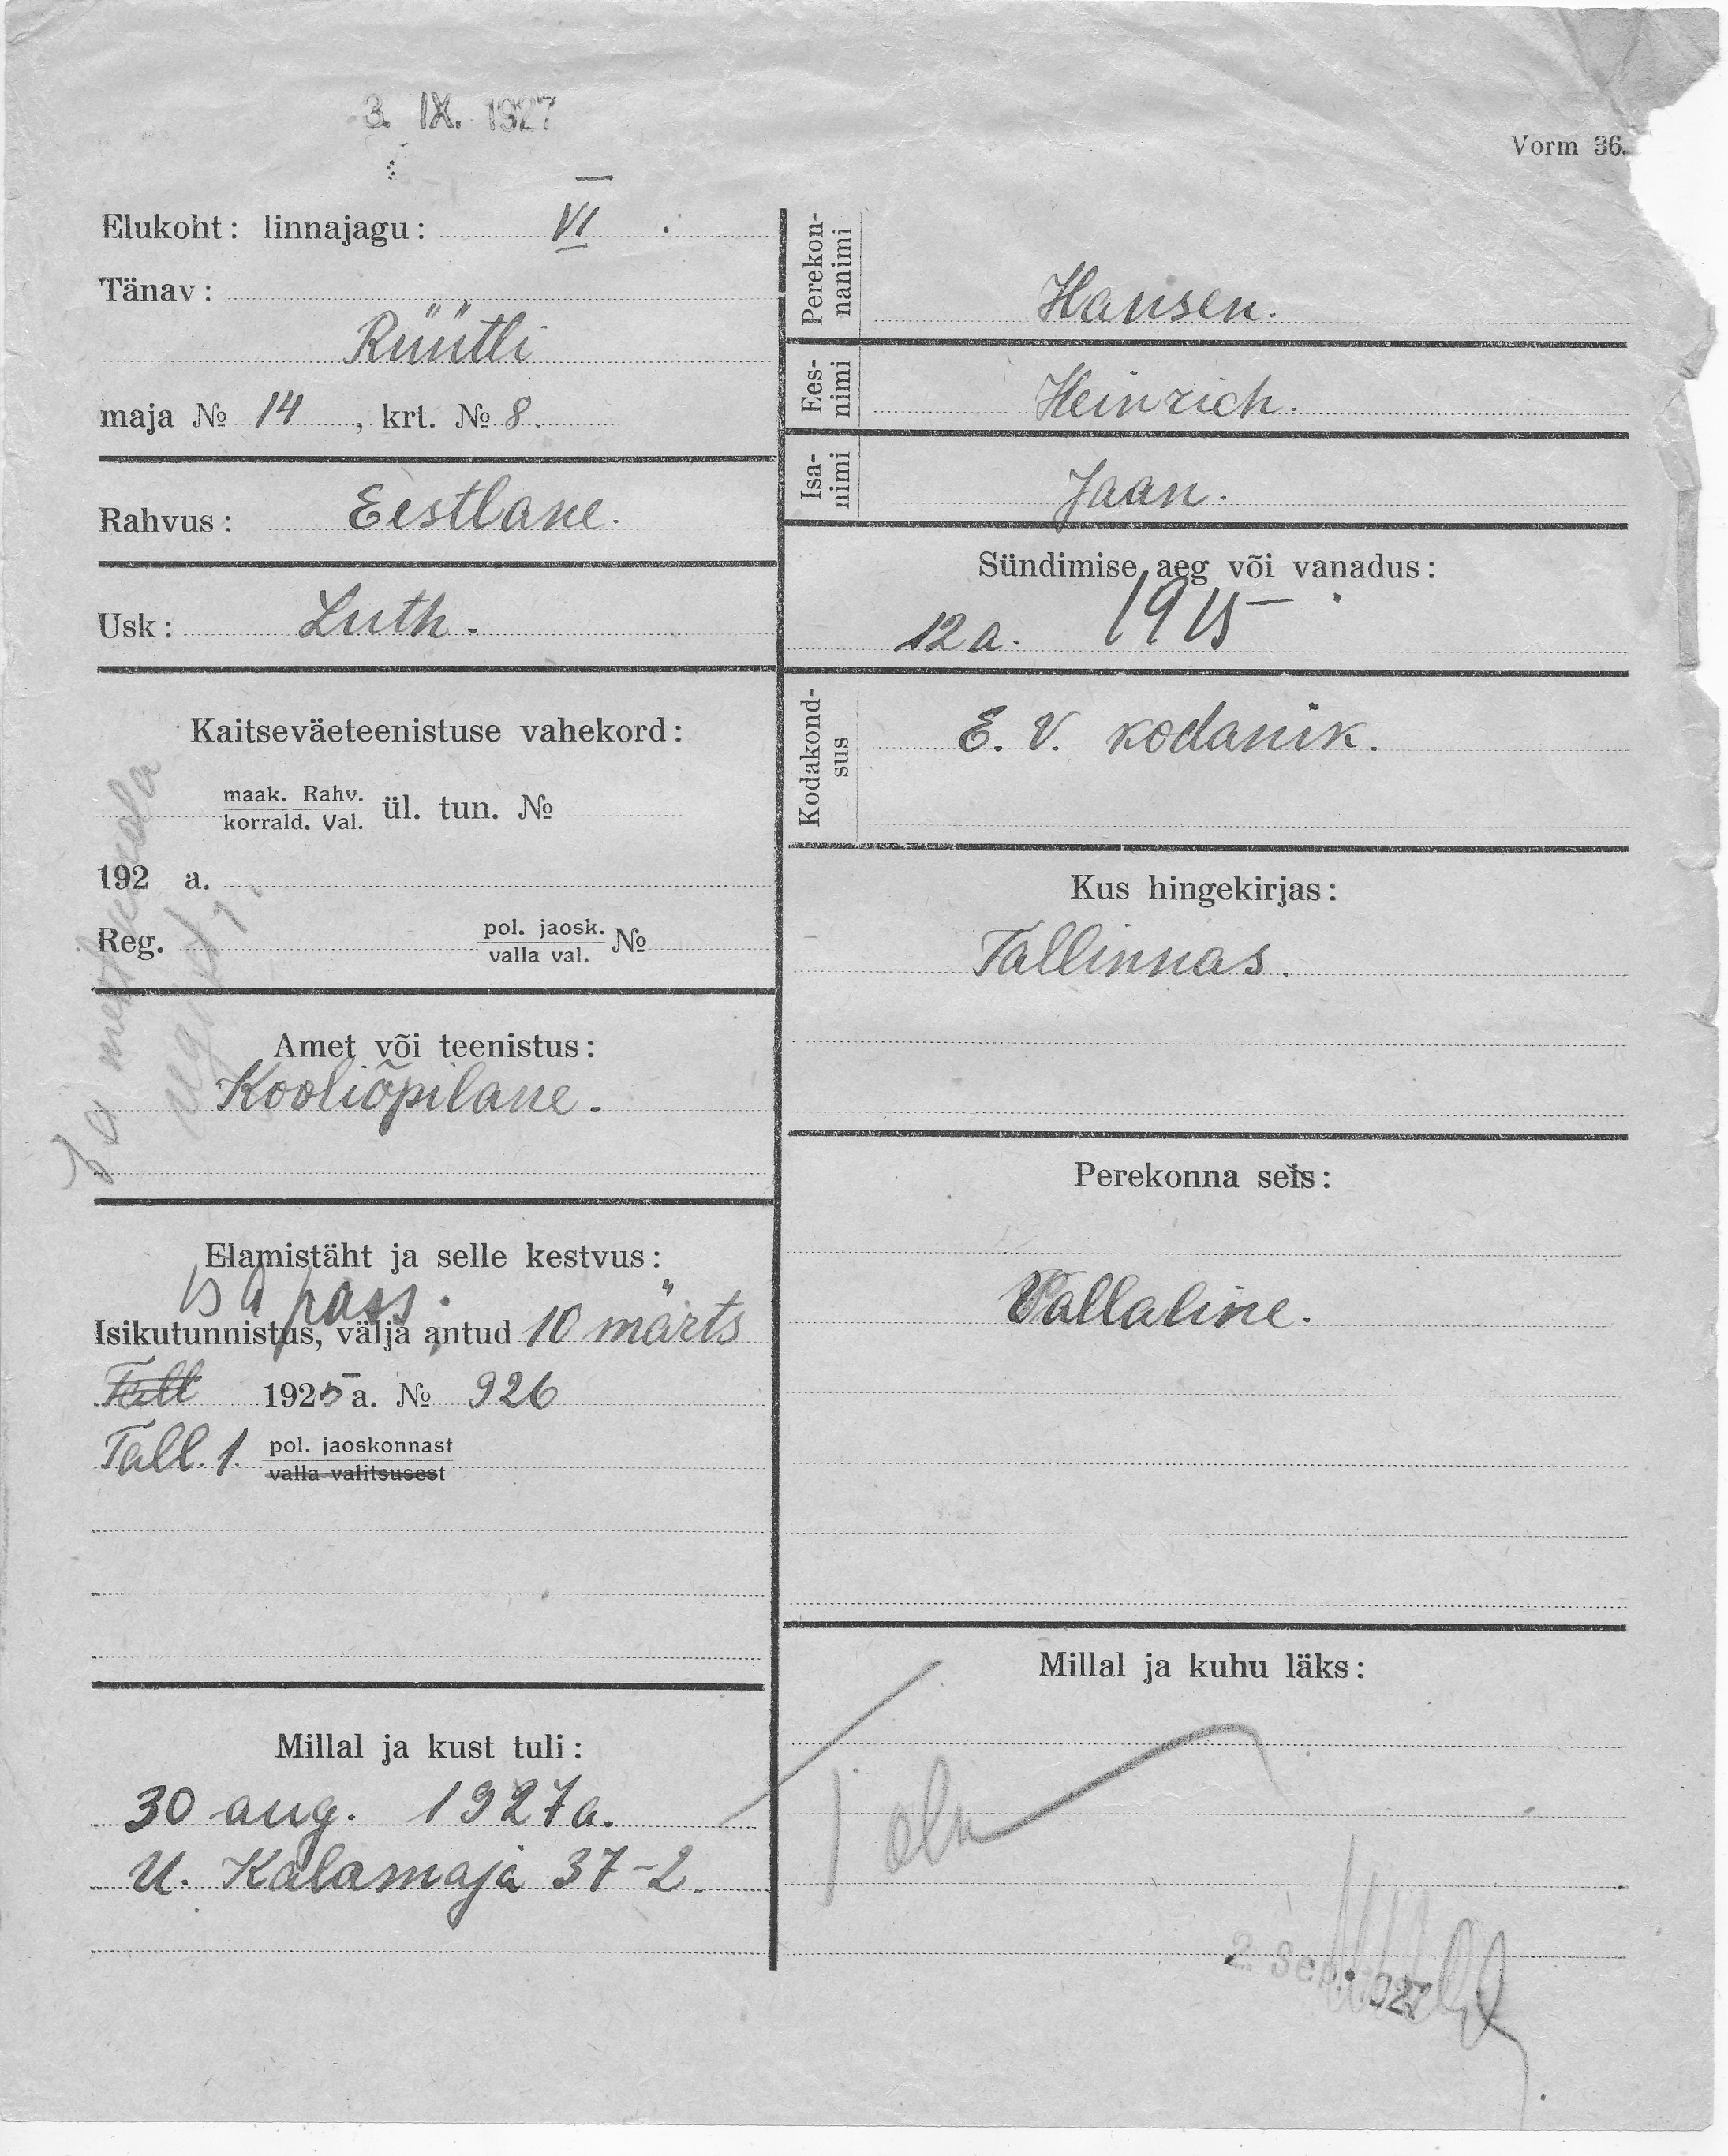 3. IX. 1927
Vorm 36.
Elukoht: linnajagu: VI
Tänav:
Rüütli
maja № 14, krt. № 8.
Rahvus: Eestlane.
Usk: Luth.
Kaitseväeteenistuse vahekord:
maak. Rahv.
korrald. Val. ül. tun. №
192 a.
Reg. pol. jaosk. №
valla val.
Amet või teenistus:
Kooliõpilane.
Elamistäht ja selle kestvus:
pass.
Isikutunnistus, välja antud 10 märts
Tall 1925 a. № 926
Tall. 1. pol. jaoskonnast
valla valitsusest
Millal ja kust tuli:
30 aug. 1927 a.
U. Kalamaja 37-2.
Perekon-
nanimi
Hansen.
Ees-
nimi
Heinrich.
Isa-
nimi
Jaan.
Sündimise aeg või vanadus:
12 a. 1915
Kodakond-
sus
E. V. kodanik.
Kus hingekirjas:
Tallinnas.
Perekonna seis:
Vallaline.
Millal ja kuhu läks:
2. Sep. 1927